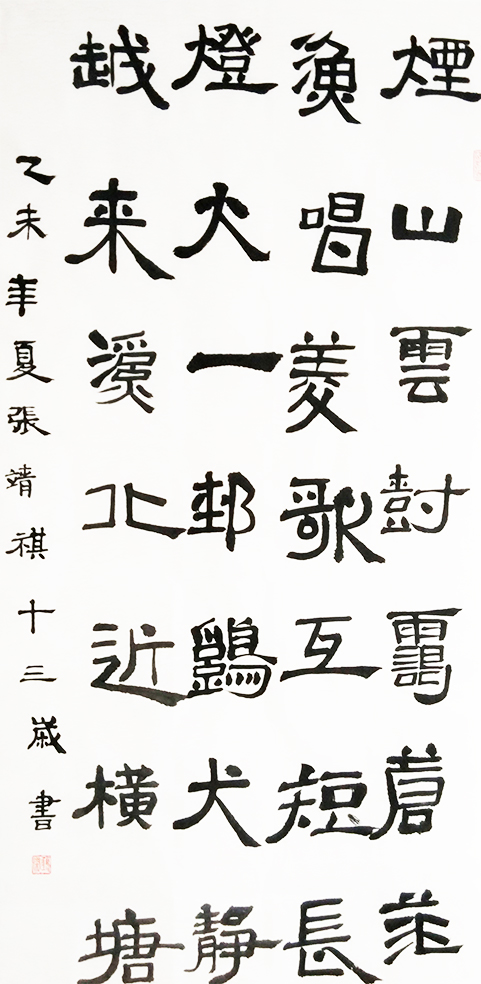 煙山雲尌靄蒼茫
漁唱菱歌互短長
燈火一邨鷄犬靜
越来溪北近横塘
乙未年夏張靖祺十三歲書